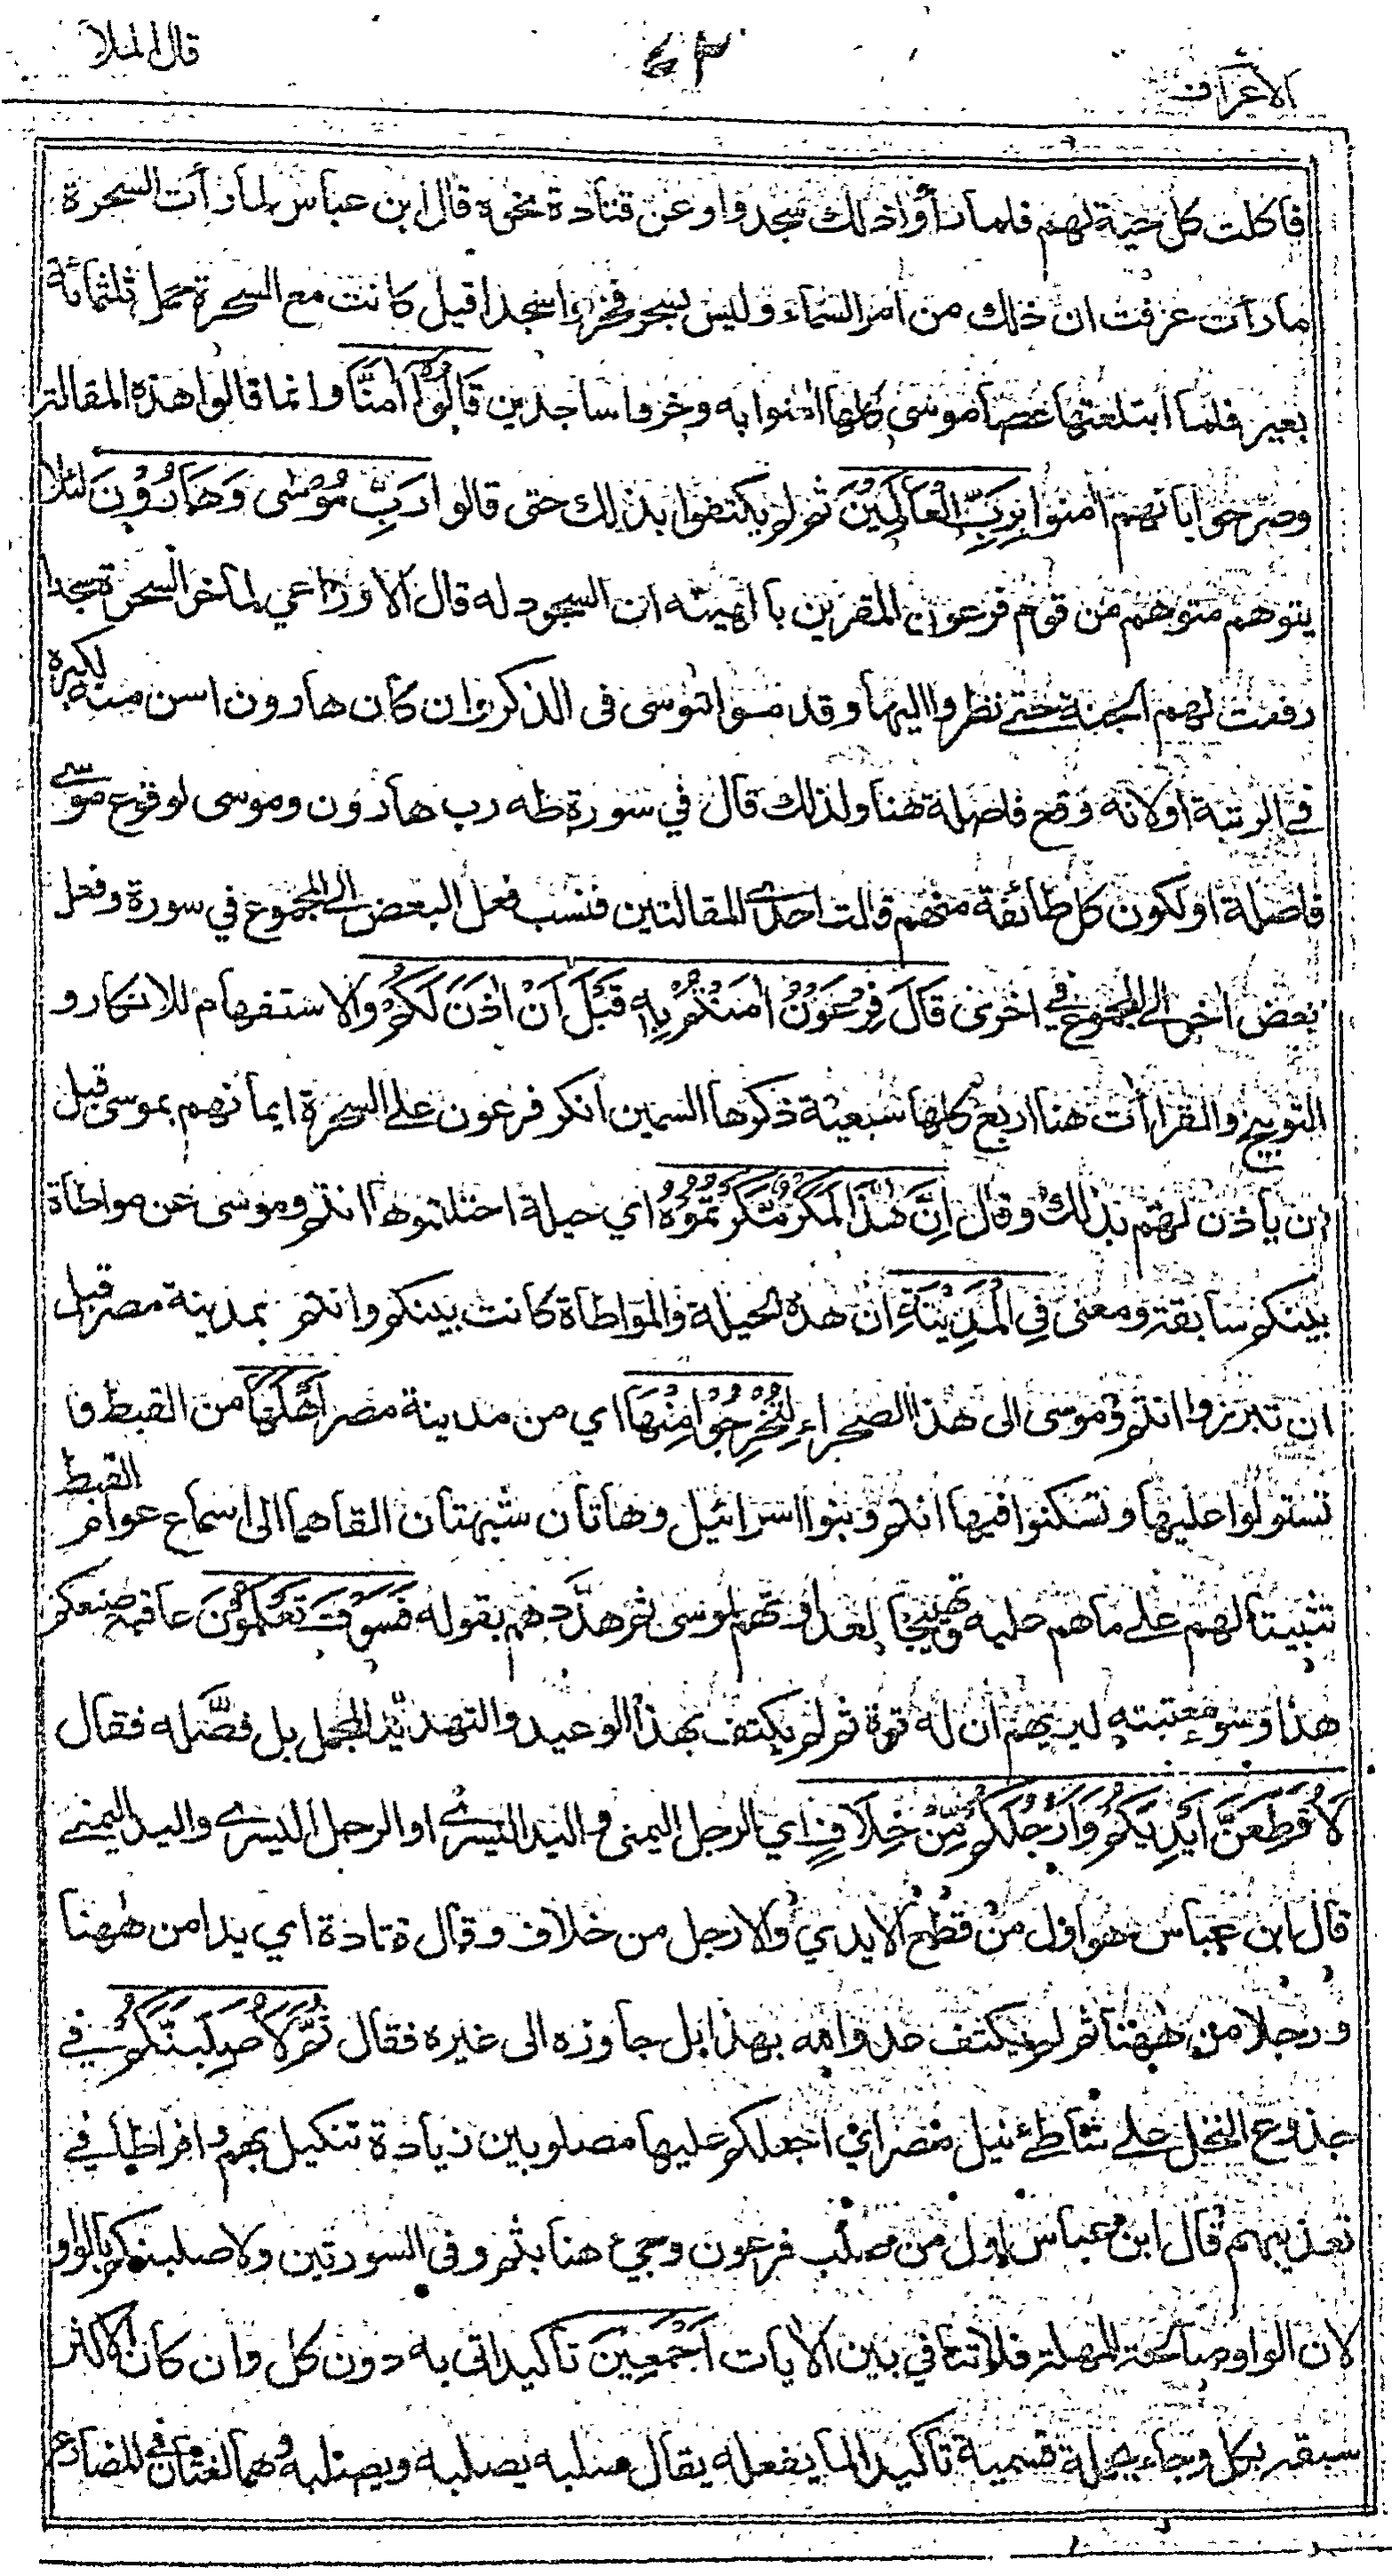 قال الملأ
٦٣
الأعراف
فاكلت كل حية لهم فلما رأوا ذلك سجدوا وعن قتادة نحوه قال ابن عباس لما رأت السحرة
ما رأت عرفت ان ذلك من امر السماء وليس بسحر فخروا سجدا قيل كانت مع السحرة حمل ثلثمائة
بعير فلما ابتلعتها عصا موسى كلها امنوا به وخروا ساجدين قَالُوْا اٰمَنَّا وانما قالوا هذه المقالة
وصرحوا بانهم امنوا بِرَبِّ الْعَالَمِيْنَ ثم لم يكتفوا بذلك حتى قالوا رَبِّ مُوْسٰى وَهَارُوْنَ لئلا
يتوهم متوهم من قوم فرعون المقرين بالهيته ان السجود له قال الاوزاعي لما خر السحرة سجدا
رفعت لهم الجنة حتى نظروا اليها وقد قدموا موسى في الذكر وان كان هارون اسن منه لكبره
في الرتبة او لانه وقع فاصلة هنا ولذلك قال في سورة طه رب هارون وموسى لوقوع موسى
فاصلة او لكون كل طائفة منهم قالت احدى المقالتين فنسب فعل البعض الى المجموع في سورة وفعل
بعض اخر الى المجموع في اخرى قَالَ فِرْعَوْنُ اٰمَنْتُمْ بِهٖ قَبْلَ اَنْ اٰذَنَ لَكُمْ والاستفهام للانكار و
التوبيخ والقراأت هنا اربع كلها سبعية ذكرها السمين انكر فرعون على السحرة ايمانهم بموسى قبل
ان يأذن لهم بذلك وقال اِنَّ هٰذَا لَمَكْرٌ مَّكَرْتُمُوْهُ اي حيلة احتلتموها انتم وموسى عن مواطاة
بينكم سابقة ومعنى فِي الْمَدِيْنَةِ ان هذه الحيلة والمواطاة كانت بينكم وانتم بمدينة مصر قبل
ان تبرزوا انتم وموسى الى هذا الصحراء لِتُخْرِجُوْا مِنْهَا اي من مدينة مصر اَهْلَهَا من القبط و
تستولوا عليها وتسكنوا فيها انتم وبنوا اسرائيل وهاتان شبهتان القاهما الى اسماع عوام القبط
تثبيتا لهم على ما هم عليه وتهييجا لعداوتهم لموسى ثم هددهم بقوله فَسَوْفَ تَعْلَمُوْنَ عاقبة صنعكم
هذا وسوء مغبته ليريهم ان له قوة ثم لم يكتف بهذا الوعيد والتهديد المجمل بل فصَّله فقال
لَاُقَطِّعَنَّ اَيْدِيَكُمْ وَاَرْجُلَكُمْ مِّنْ خِلَافٍ اي الرجل اليمنى واليد اليسرى او الرجل اليسرى واليد اليمنى
قال ابن عباس هو اول من قطع الايدي والارجل من خلاف وقال قتادة اي يدا من ههنا
ورجلا من ههنا ثم لم يكتف عدو الله بهذا بل جاوزه الى غيره فقال ثُمَّ لَاُصَلِّبَنَّكُمْ في
جذوع النخل على شاطئ نيل مصر اي اجعلكم عليها مصلوبين زيادة تنكيل بهم وافراطا في
تعذيبهم قال ابن عباس اول من صلب فرعون وجيء هنا بثم وفي السورتين ولاصلبنكم بالواو
لان الواو صالحة للمهلة فلا تنافي بين الآيات اَجْمَعِيْنَ تأكيد اتى به دون كل وان كان الاكثر
سبقه بكل وجاء بجملة قسمية تأكيدا لما يفعله يقال صلبه يصلبه ويصلبه وهما لغتان في المضارع